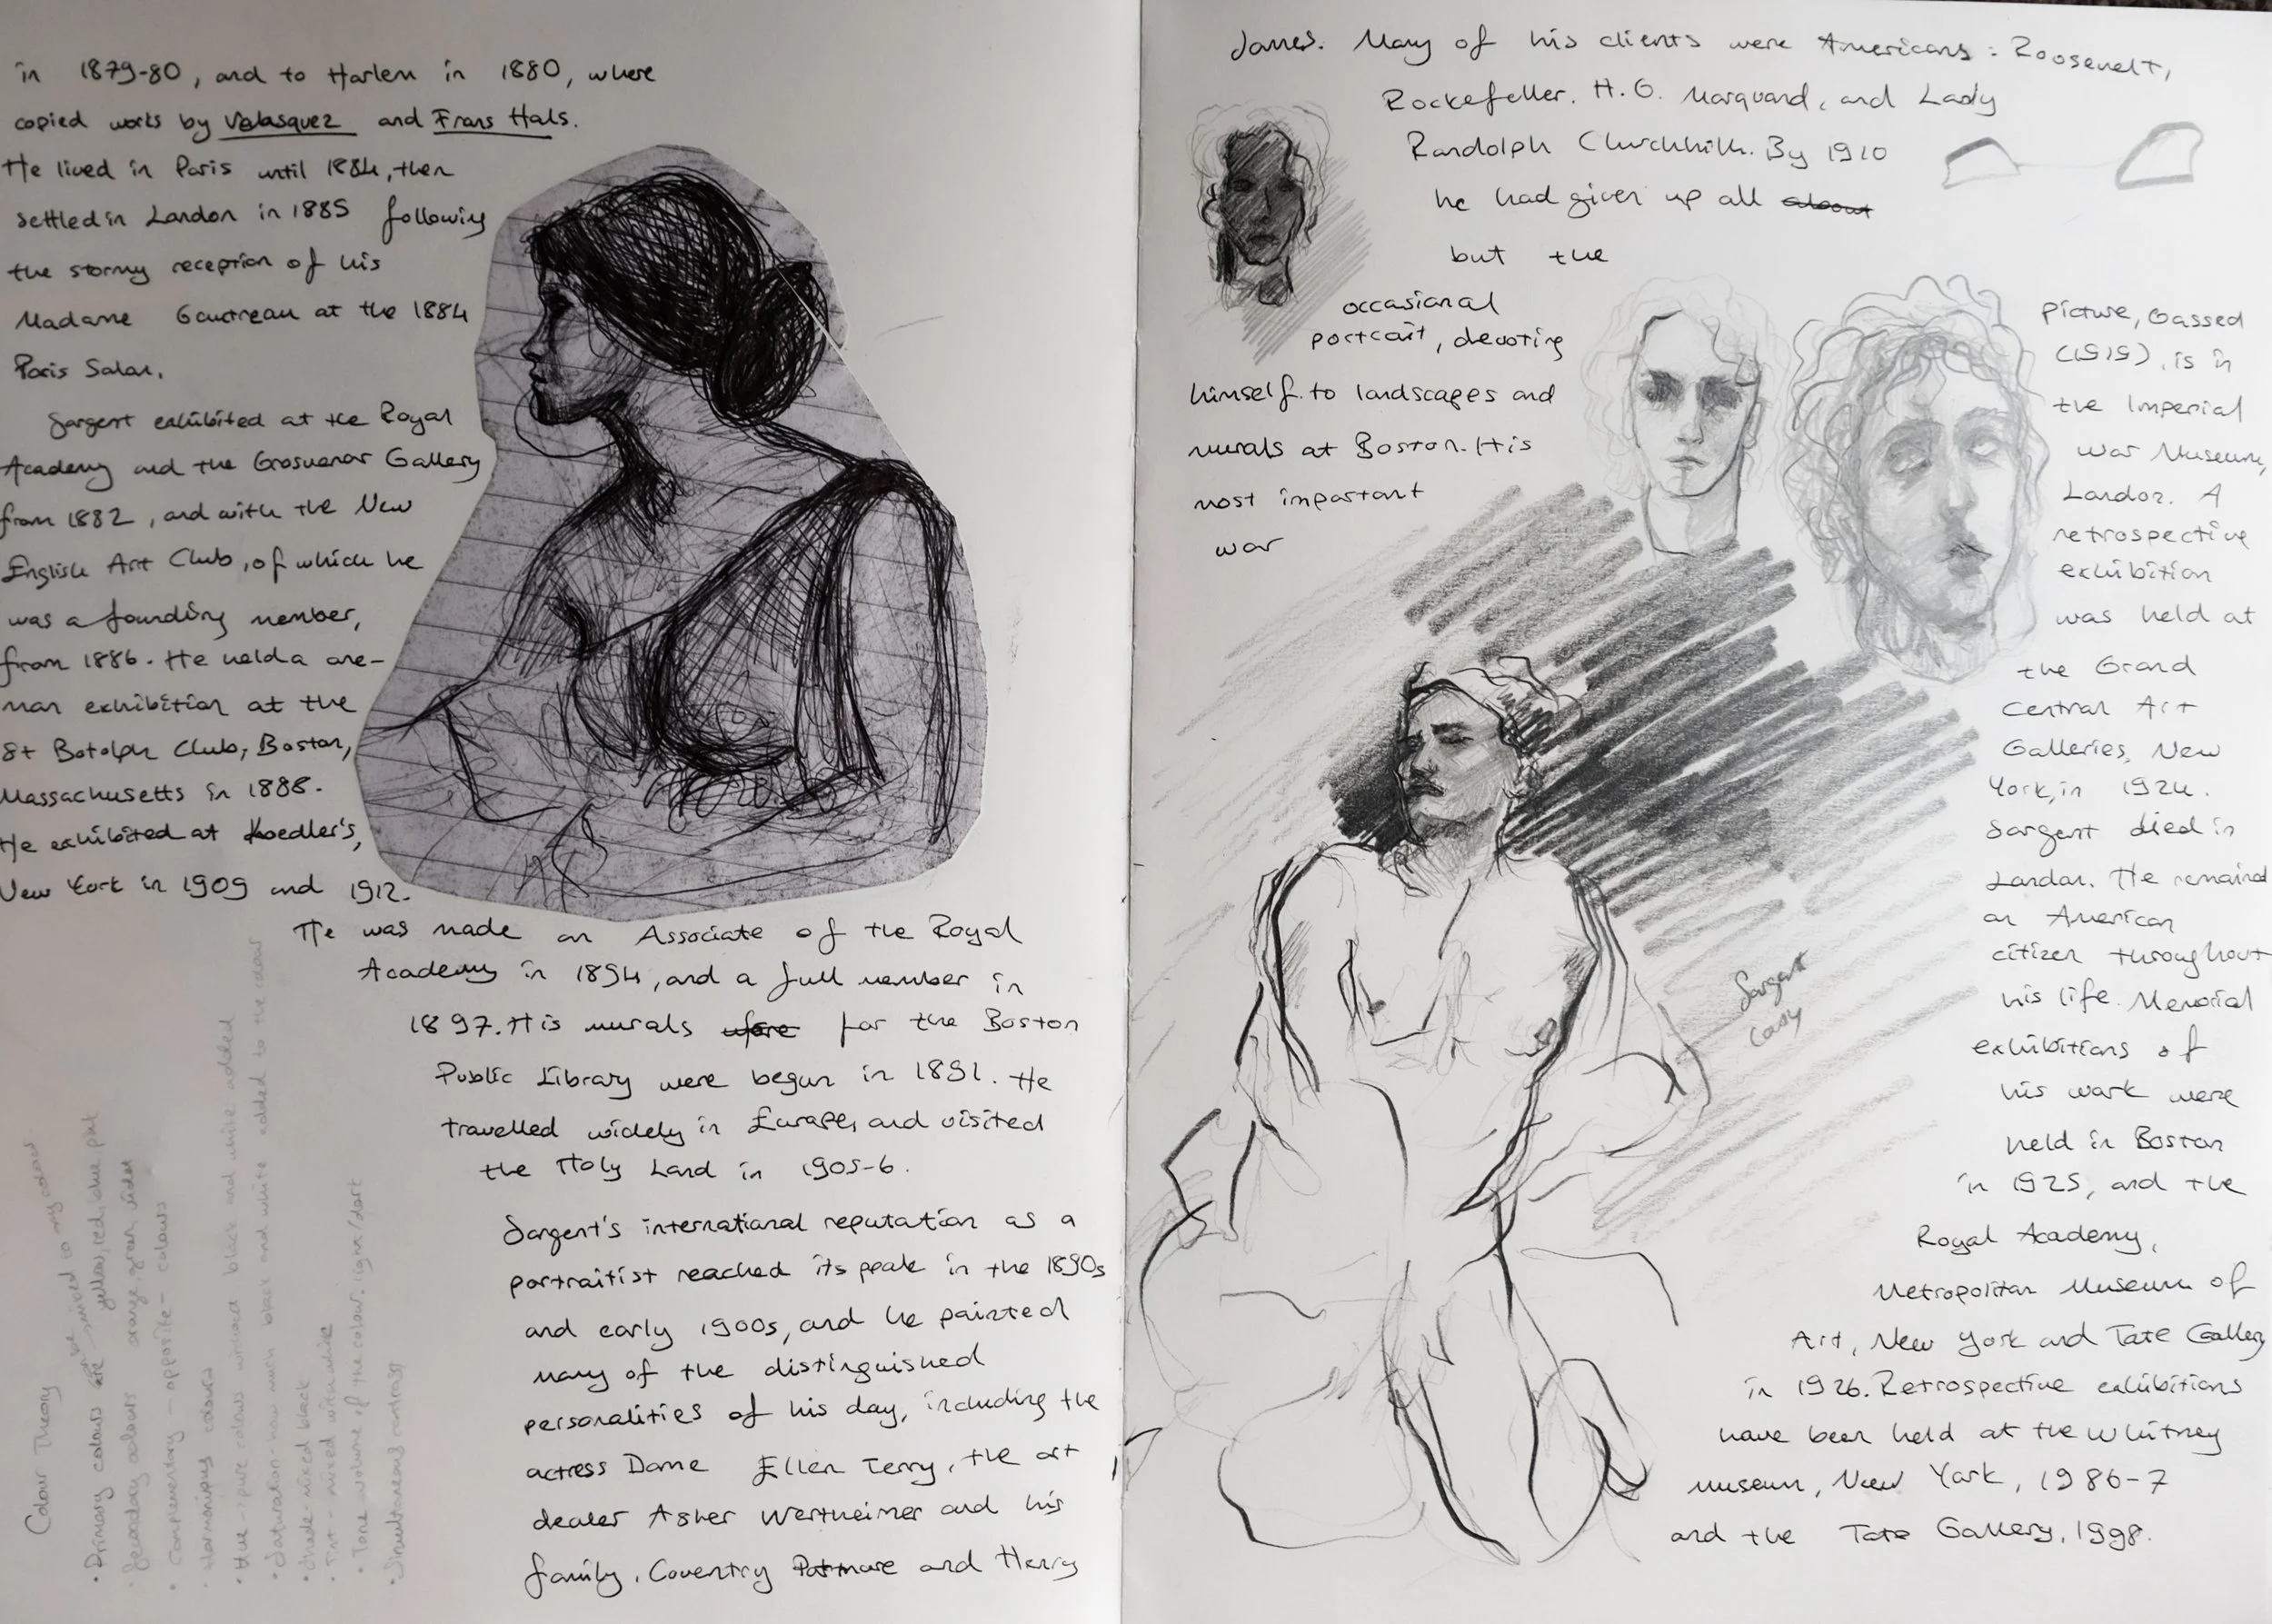 in 1879-80, and to Harlem in 1880, where
copied works by Velasquez and Frans Hals.
He lived in Paris until 1884, then
settled in London in 1885 following
the stormy reception of his
Madame Gautreau at the 1884
Paris Salon.
Sargent exhibited at the Royal
Academy and the Grosvenor Gallery
from 1882, and with the New
English Art Club, of which he
was a founding member,
from 1886. He held a one-
man exhibition at the
St Botolph Club, Boston,
Massachusetts in 1888.
He exhibited at Knoedler's,
New York in 1909 and 1912.
He was made an Associate of the Royal
Academy in 1894, and a full member in
1897. His murals for the Boston
Public Library were begun in 1891. He
travelled widely in Europe, and visited
the Holy Land in 1905-6.
Sargent's international reputation as a
portraitist reached its peak in the 1890s
and early 1900s, and he painted
many of the distinguished
personalities of his day, including the
actress Dame Ellen Terry, the art
dealer Asher Wertheimer and his
family, Coventry Patmore and Henry
Colour Theory
• Primary colours are yellow, red, blue
• Secondary colours orange, green, violet
• Complementary - opposite - colours
• Harmonious colours
• Hue - pure colour without black and white added
• Saturation - how much black and white added to the colour
• Shade - mixed black
• Tint - mixed with white
• Tone of the colour. light/dark
• Simultaneous contrast
James. Many of his clients were Americans: Roosevelt,
Rockefeller. H.G. Marquand, and Lady
Randolph Churchhill. By 1910
he had given up all about
but the
occasional
portrait, devoting
himself to landscapes and
murals at Boston. His
most important
war
picture, Gassed
(1919), is in
the Imperial
War Museum,
London. A
retrospective
exhibition
was held at
the Grand
Central Art
Galleries, New
York, in 1924.
Sargent died in
London. He remained
an American
citizen throughout
his life. Memorial
exhibitions of
his work were
held in Boston
in 1925, and the
Royal Academy,
Metropolitan Museum of
Art, New York and Tate Gallery
in 1926. Retrospective exhibitions
have been held at the Whitney
museum, New York, 1986-7
and the Tate Gallery, 1998.
Sargent
copy